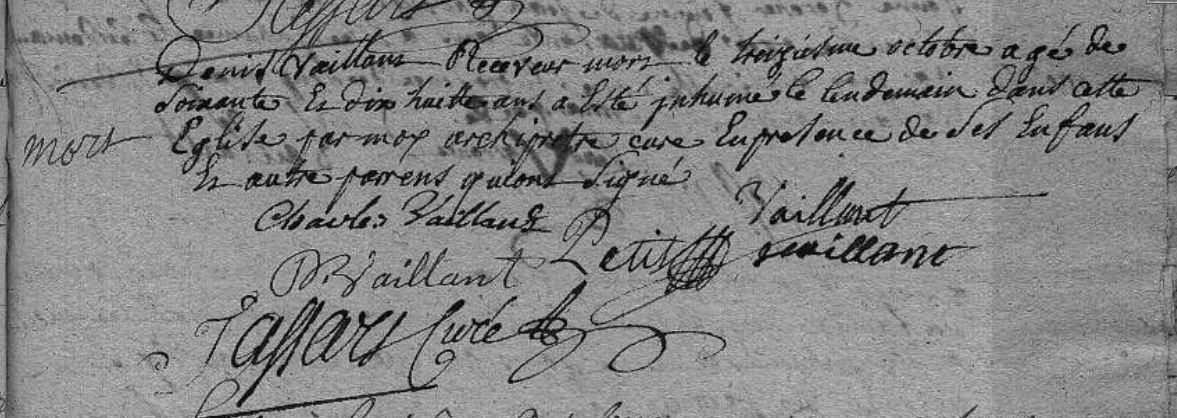 Denis Vaillant Receveur mort le treiziesme octobre agé de
soixante Et dix huitte ans a Esté inhumé le lendemain dans cette
mort
Eglise par moy archipretre curé En presence de ses Enfans
Et autre parens qui ont signé
Charles Vaillant
Vaillant
Petit vaillant
D Vaillant
Tassart Curé